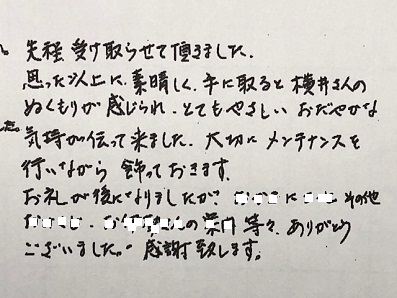 先程受け取らせて頂きました。
思った以上に素晴しく、手に取ると横井さんの
ぬくもりが感じられ、とてもやさしい おだやかな
気持が伝って来ました。大切にメンテナンスを
行いながら 飾っておきます。
お礼が後になりましたが、 その他
の案内 等々、ありがとう
ございました。感謝致します。